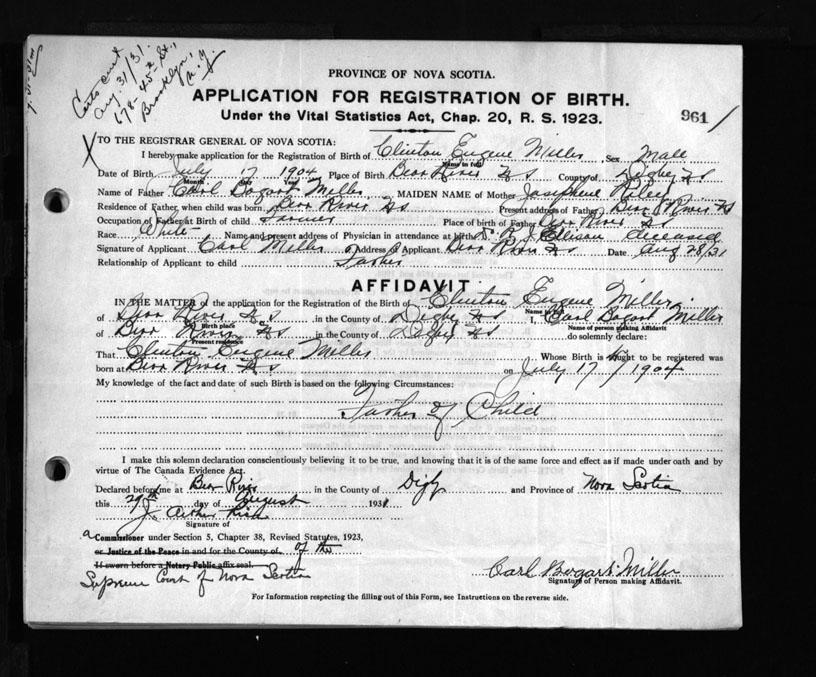 Certs sent
Aug. 31/31.
678-45th St.,
Brooklyn,
N.Y.
PROVINCE OF NOVA SCOTIA.
APPLICATION FOR REGISTRATION OF BIRTH.
961
Under the Vital Statistics Act, Chap. 20, R. S. 1923.
TO THE REGISTRAR GENERAL OF NOVA SCOTIA:
I hereby make application for the Registration of Birth of Clinton Eugene Miller Sex Male
Name in full
Date of Birth July 17 1904 Place of Birth Bear River N S County of Digby N S
Month Day Year
Name of Father Carl Bogart Miller MAIDEN NAME of Mother Josephine
Residence of Father, when child was born Bear River N S Present address of Father Bear River N S
Occupation of Father at Birth of child Farmer Place of birth of Father Bear River N S
Race White Name and present address of Physician in attendance at birth deceased
Signature of Applicant Carl Miller Address of Applicant Bear River N S Date Aug 28/31
Relationship of Applicant to child Father
AFFIDAVIT
IN THE MATTER of the application for the Registration of the Birth of Clinton Eugene Miller
Name in full
of Bear River N S in the County of Digby N S I, Carl Bogart Miller
Birth place Name of person making Affidavit
of Bear River N S in the County of Digby N S do solemnly declare:
Present residence
That Clinton Eugene Miller Whose Birth is sought to be registered was
born at Bear River N S on July 17 1904
My knowledge of the fact and date of such Birth is based on the following Circumstances:
Father of Child
I make this solemn declaration conscientiously believing it to be true, and knowing that it is of the same force and effect as if made under oath and by
virtue of The Canada Evidence Act.
Declared before me at Bear River in the County of Digby and Province of Nova Scotia
this 29th day of August 1931
J. Arthur Rice
Signature of
a Commissioner under Section 5, Chapter 38, Revised Statutes, 1923,
or Justice of the Peace in and for the County of of the
If sworn before a Notary Public affix seal.
Supreme Court of Nova Scotia
Carl Bogart Miller
Signature of Person making Affidavit.
For Information respecting the filling out of this Form, see Instructions on the reverse side.